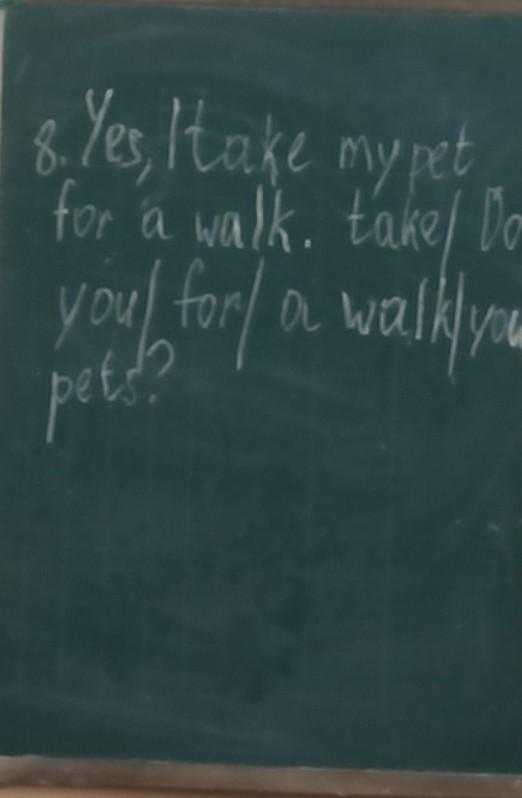 8. Yes, I take my pet
for a walk. take/ Do
you/ for/ a walk/you
pets?